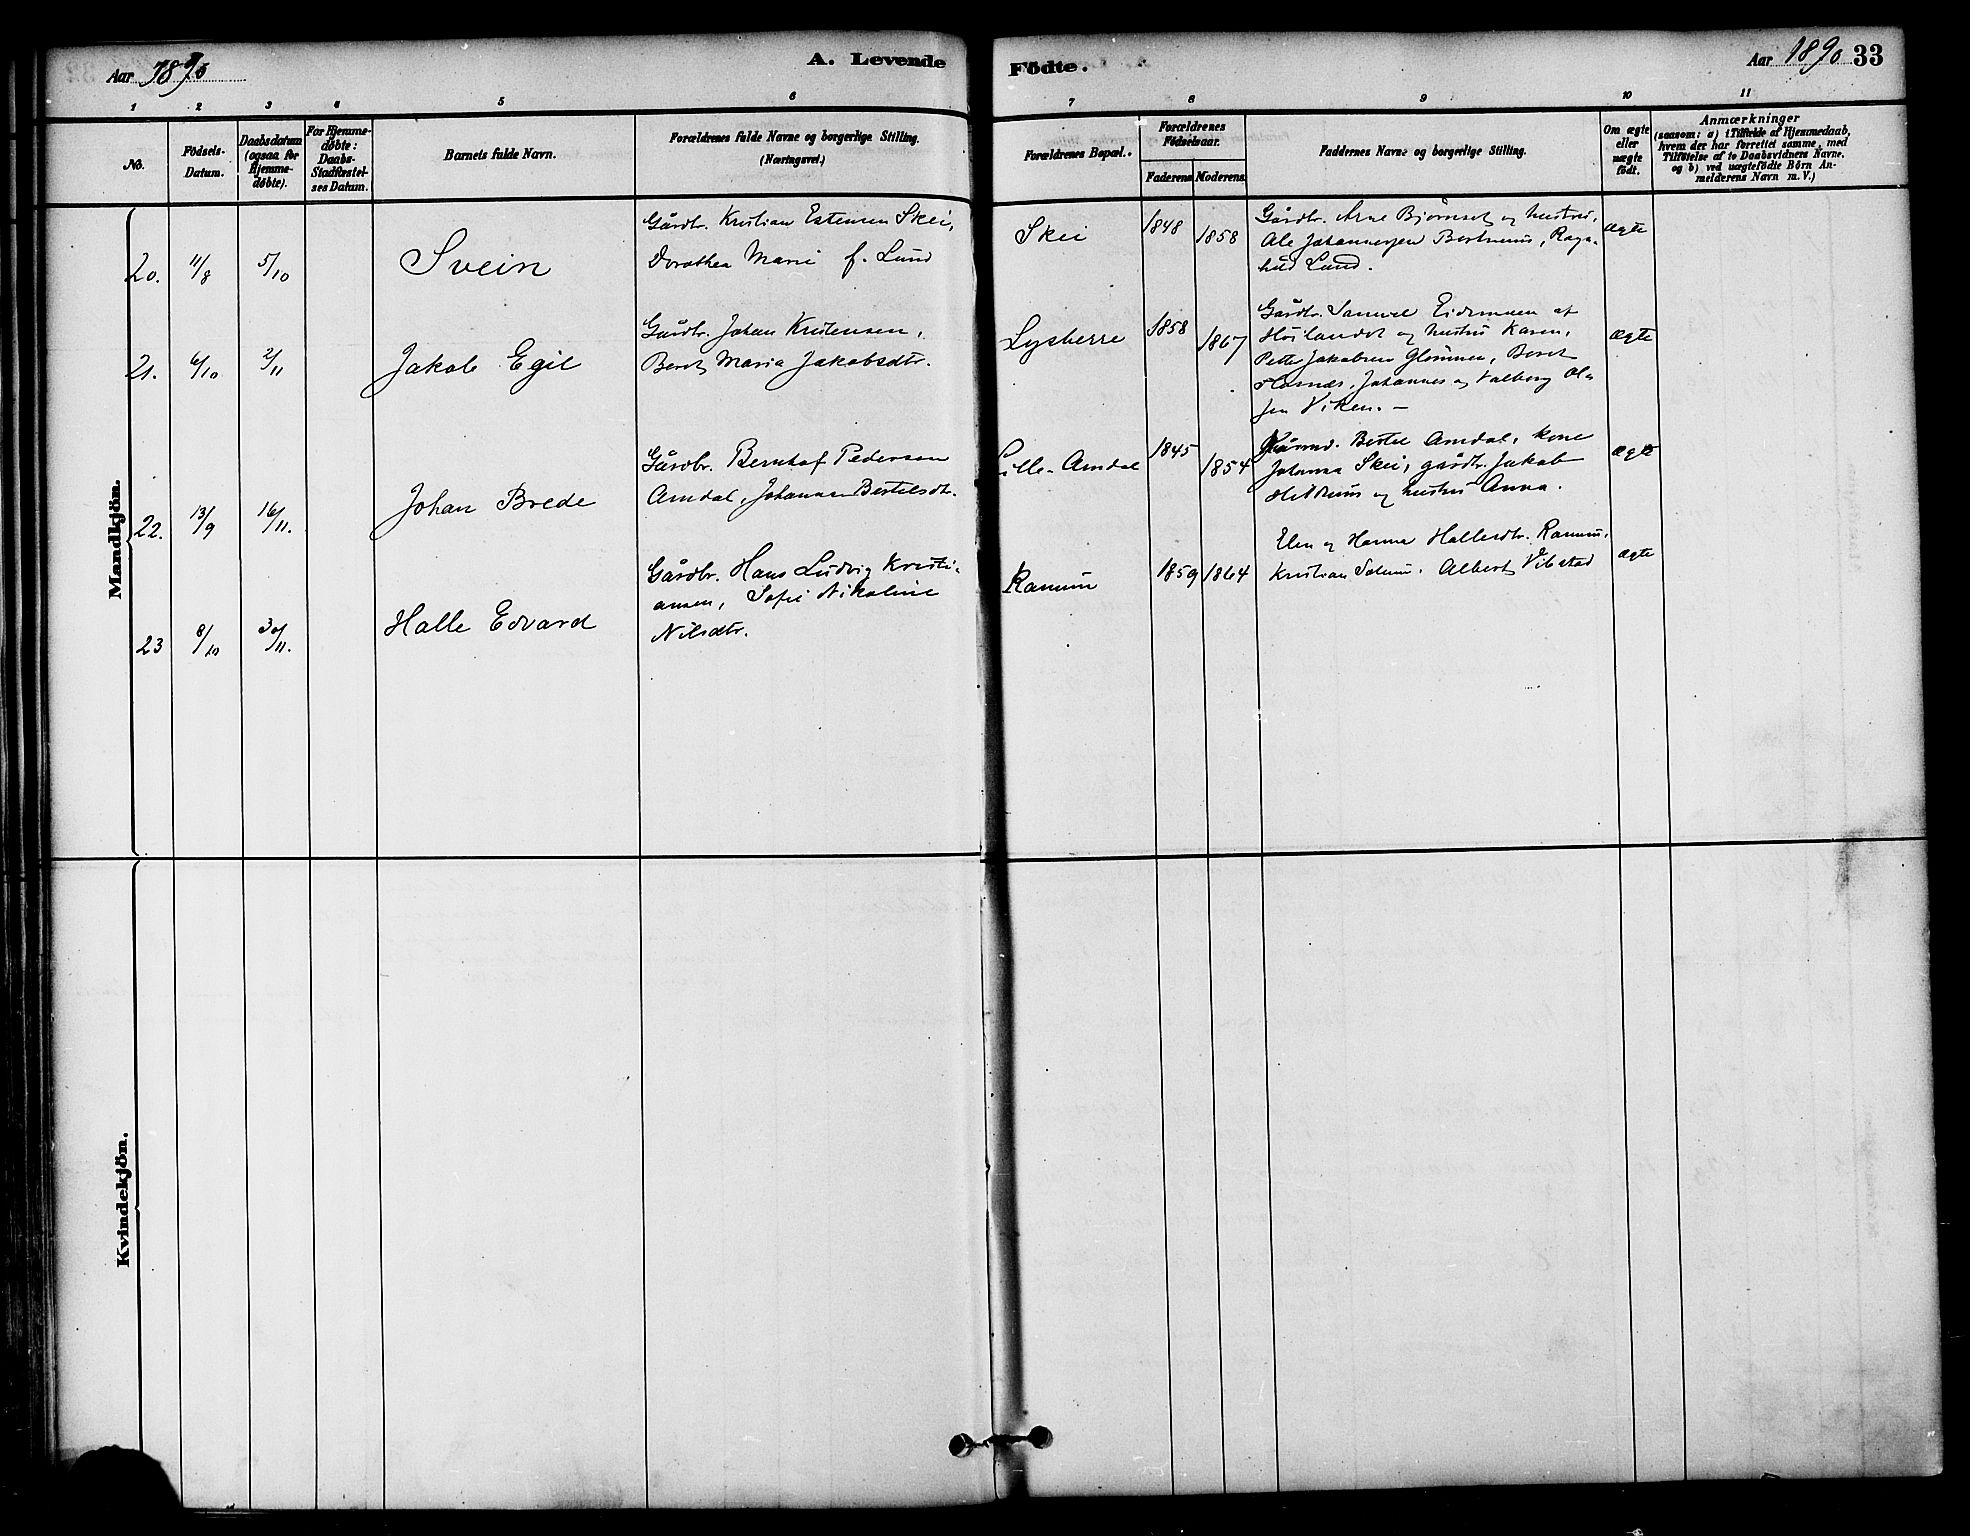 Aar 1890
A. Levende Födte.
Aar 1890 33
1 2 3 4 5 6 7 8 9 10 11
No.
Födsels-
Datum.
Daabsdatum
(ogsaa for
Hjemme-
døbte).
For Hjemme-
døbte:
Daabs-
Stadfæstel-
ses Datum.
Barnets fulde Navn.
Forældrenes fulde Navne og borgerlige Stilling.
(Næringsvei.)
Forældrenes Bopæl.
Forældrenes
Födselsaar.
Faderens Moderens
Faddernes Navne og borgerlige Stilling.
Om ægte
eller
uægte
født.
Anmærkninger
(saasom: a) i Tilfælde af Hjemmedaab,
hvem der har forrettet samme, med
Tilföielse af to Daabsvidners Navne,
og b) ved uægtefödte Börn An-
melderens Navn m. V.)
Mandkjön.
20. 11/8 5/10 Svein
Gårdbr. Kristian Estensen Skei,
Dorothea Marie f. Lund
Skei 1848 1858
Gårdbr. Arne Bjørnset og hustru,
Ole Johannesen Bertnæus, Ragn-
hild Lund.
ægte
21. 6/10 2/11 Jakob Egil
Gårdbr. Johan Kristensen,
Beret Maria Jakobsdtr.
Lysberre 1858 1867
Gårdbr. Samuel Eidsmoen af
Høilandet og hustru Karen,
Petter Jakobsen Glømmen, Beret
Flasnæs, Johannes og Valborg Ol-
sen Viken. —
ægte
22. 13/9 16/11. Johan Brede
Gårdbr. Bernhof Pedersen
Amdal, Johanna Bertelsdtr.
Lille-Amdal 1845 1854
Kårmd. Bertel Amdal, kone
Johanna Skei, gårdbr. Jakob
Hildrum og hustru Anna.
ægte
23 8/10 30/11. Halle Edvard
Gårdbr. Hans Ludvig Kristi-
ansen, Sofie Nikoline
Nilsdtr.
Ranum 1859 1864
Elen og Hanna Hallesdtr. Ranum,
Kristian Solum. Albert Vibstad
ægte
Kvindekjön.